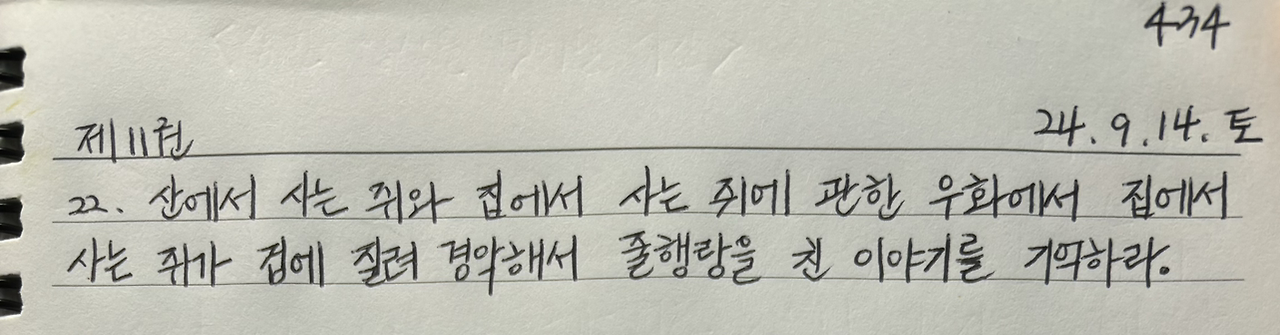 434
제11권
24.9.14.토
22. 산에서 사는 쥐와 집에서 사는 쥐에 관한 우화에서 집에서
사는 쥐가 겁에 질려 경악해서 줄행랑을 친 이야기를 기억하라.